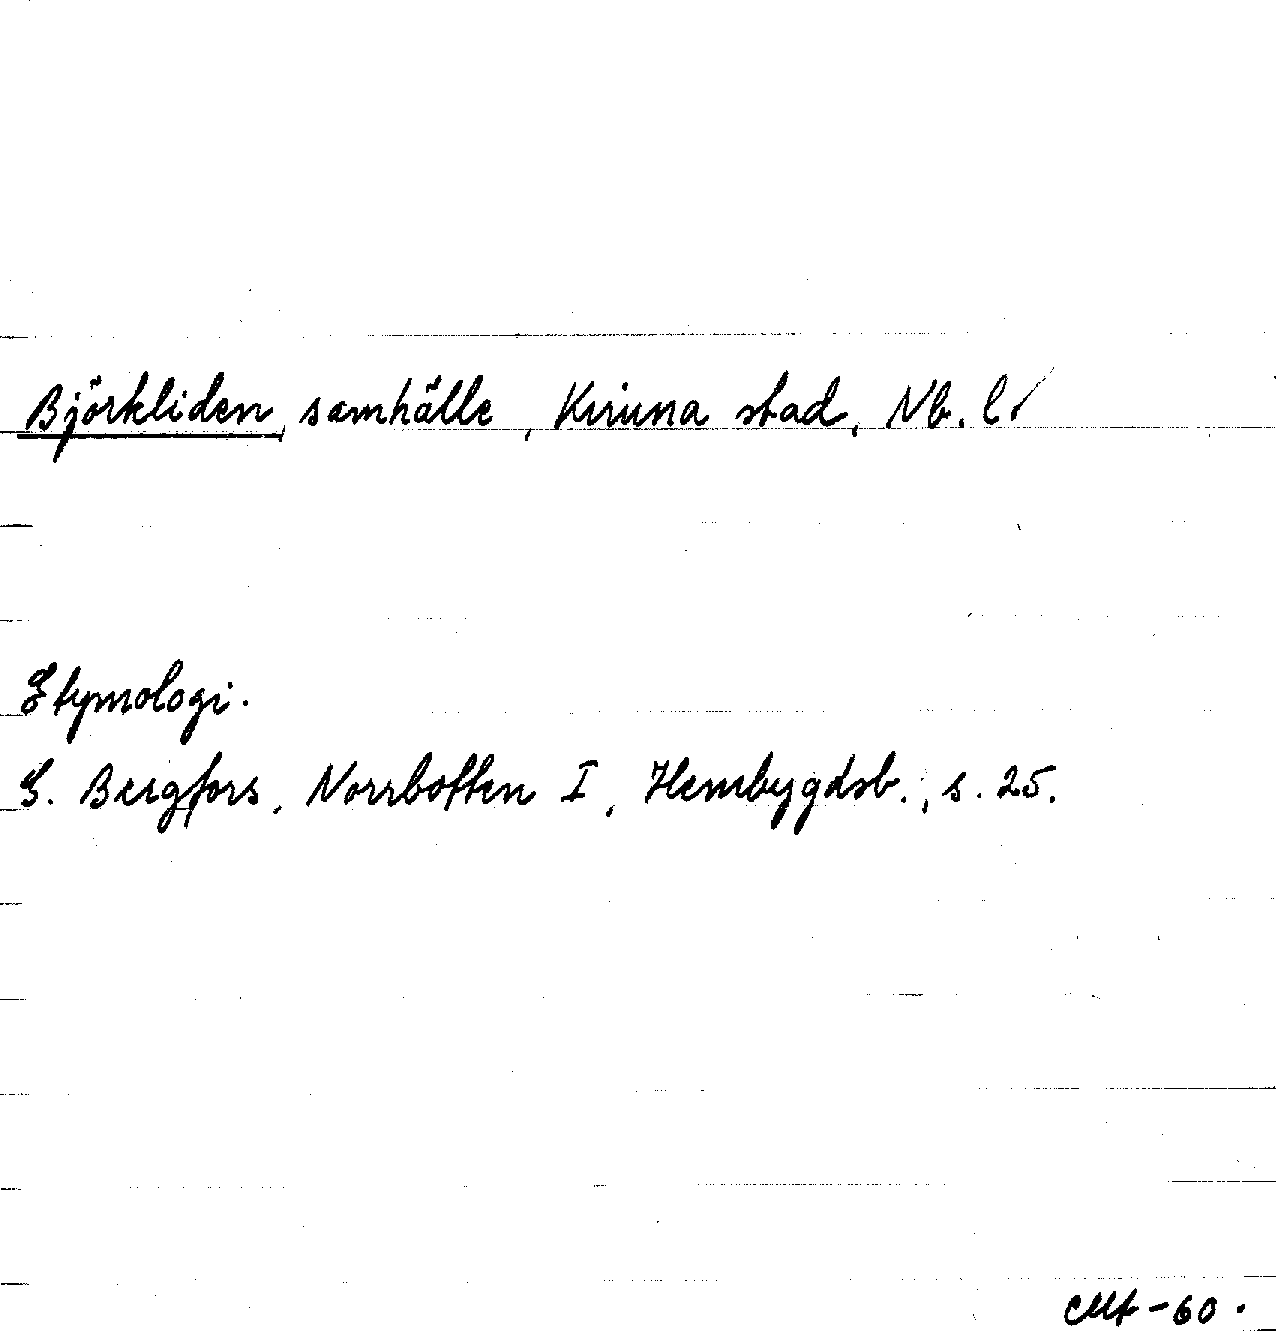 Björkliden, samhälle, Kiruna stad, Nb. l.
Etymologi.
G. Bergfors, Norrbotten I, Hembygdsb., s. 25.
-60.